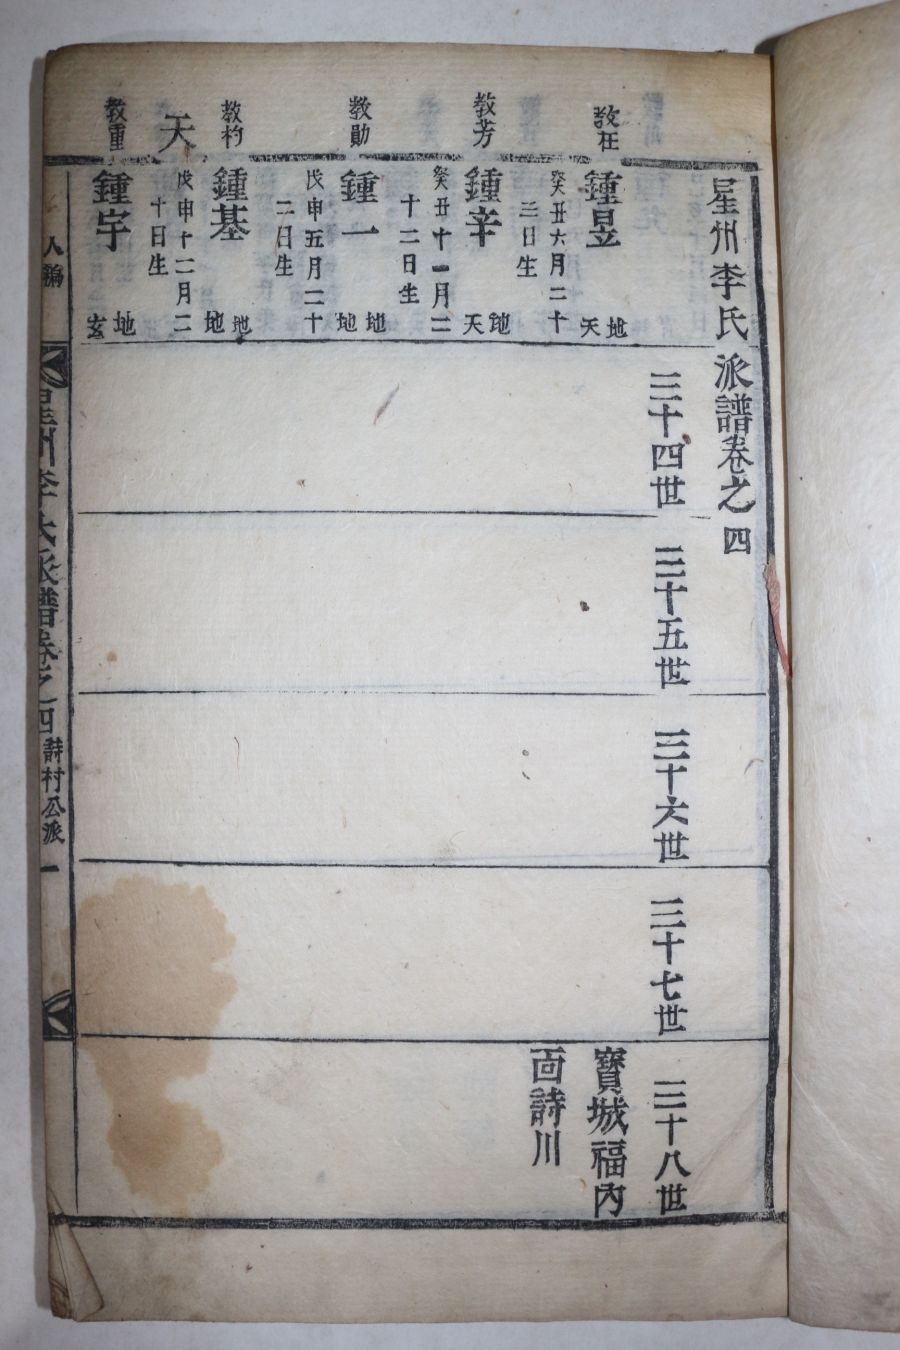 星州李氏派譜卷之四
三十四世
三十五世
三十六世
三十七世
三十八世
寶城福內
面詩川
教在
鍾昱
地
天
癸丑六月二十
三日生
教芳
鍾辛
地
天
癸丑十一月二
十二日生
教勛
鍾一
地
地
戊申五月二十
二日生
教杓
鍾基
地
地
戊申十二月二
十日生
天
教重
鍾宇
地
玄
人編
星州李氏派譜卷之四
詩村公派
一